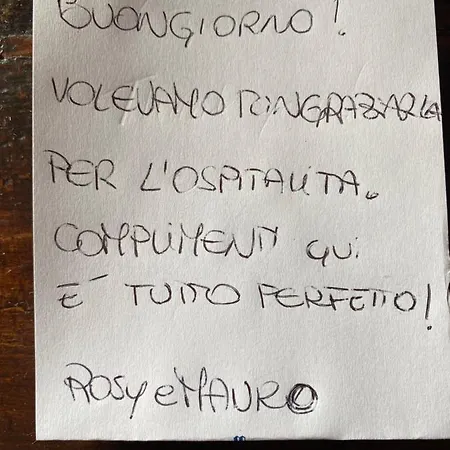 BUONGIORNO!
VOLEVAMO RINGRAZIARLA
PER L'OSPITALITA.
COMPLIMENTI QUI
E' TUTTO PERFETTO!
ROSY e MAURO